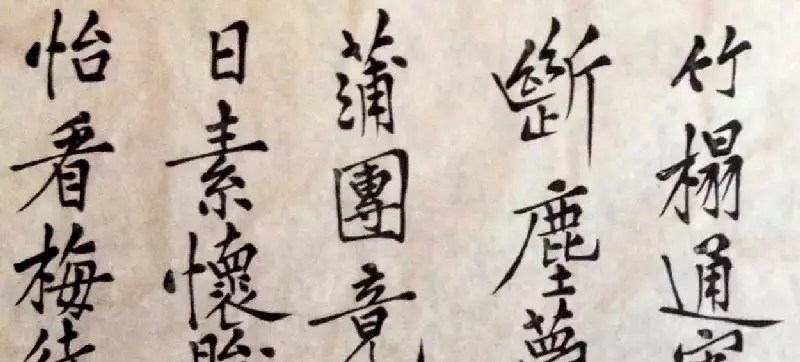 竹榻通
斷塵夢
蒲團竟
日素懷
怡看梅